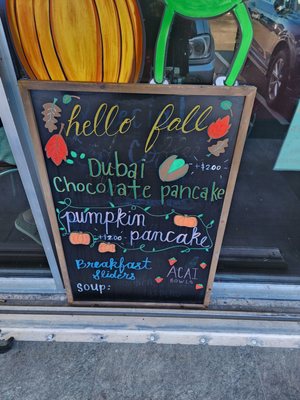 hello fall
Dubai
+2.00
Chocolate pancake
+2.00
pumpkin
+2.00 pancake
Breakfast
sliders
ACAI
BOWLS
SOUP: